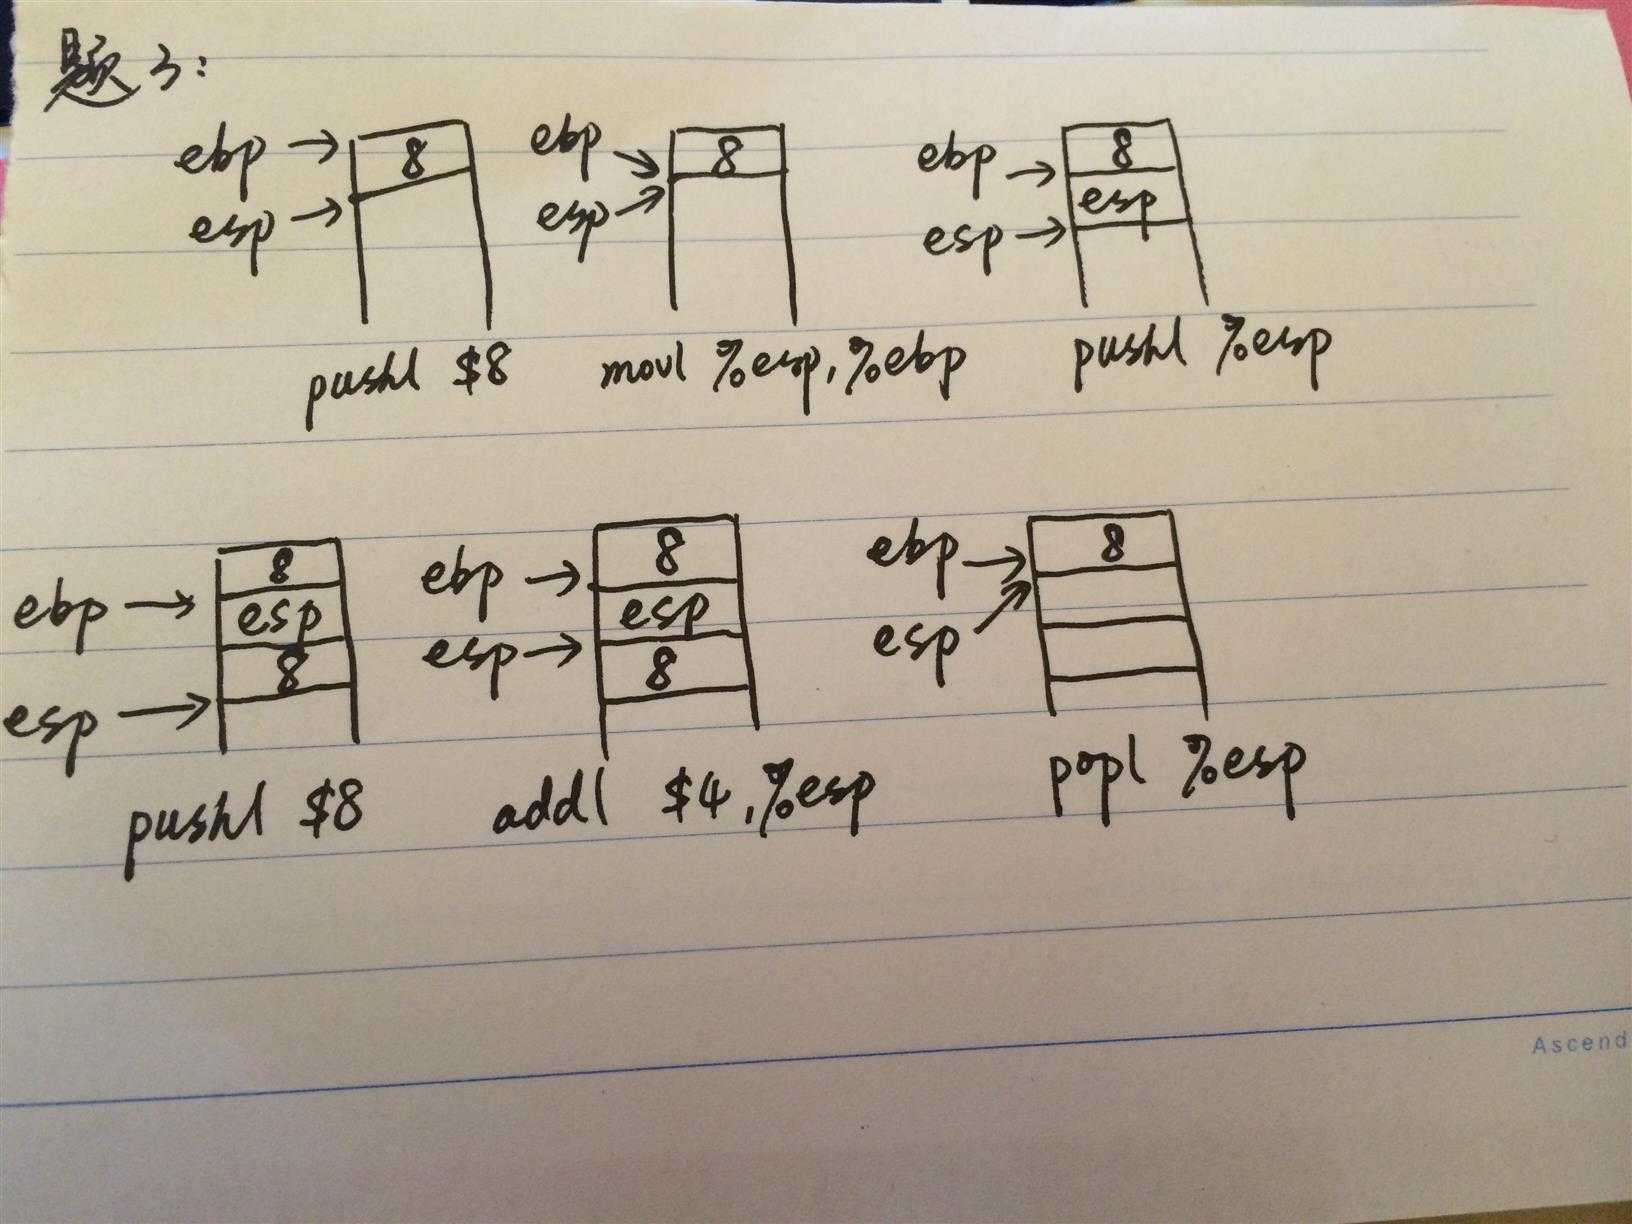 题3:
ebp → 8 ebp → 8 ebp → 8
esp → esp → esp → esp
pushl $8 movl %esp,%ebp pushl %esp
8 8 ebp → 8
ebp → esp ebp → esp esp →
8 esp → 8
esp →
pushl $8 addl $4,%esp popl %esp
Ascend